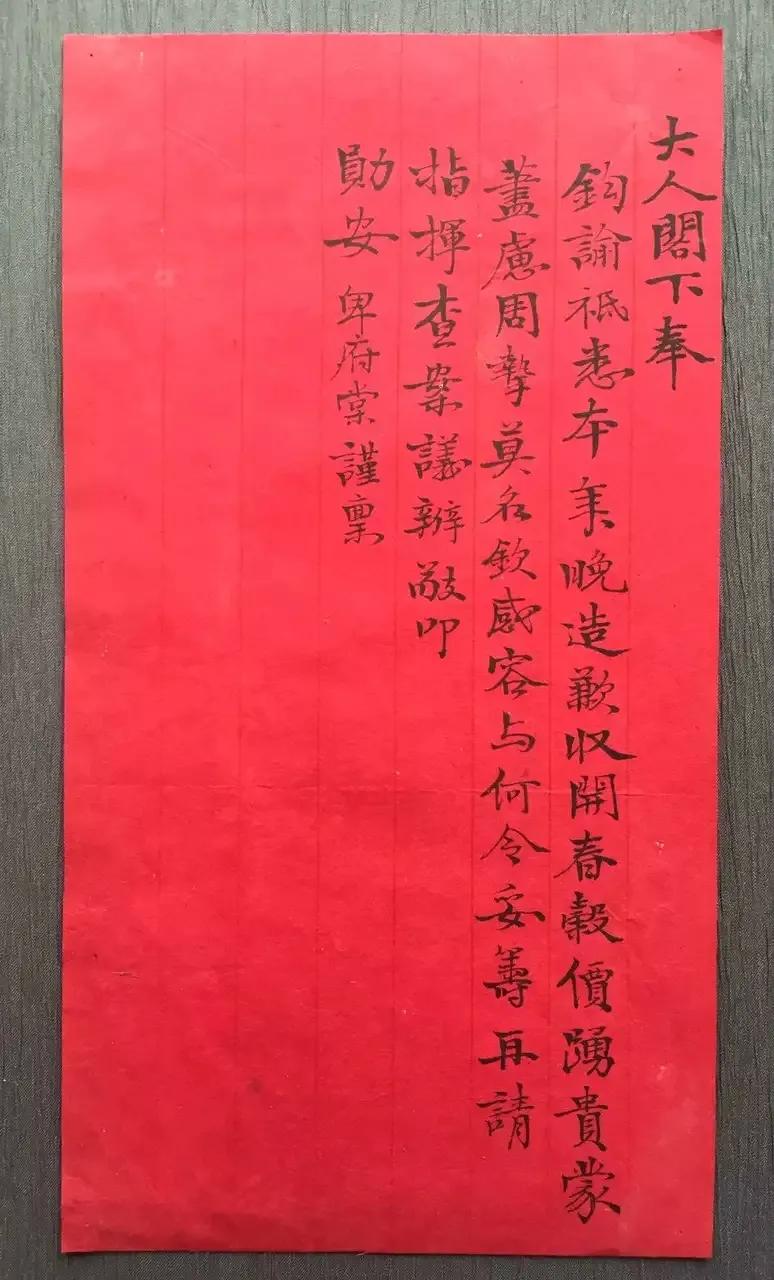 大人閣下奉
鈞諭祗悉本年晚造歉收開春穀價踴貴蒙
藎慮周摯莫名欽感容与何令妥籌再請
指揮查案議辦敬叩
勛安卑府棠謹稟